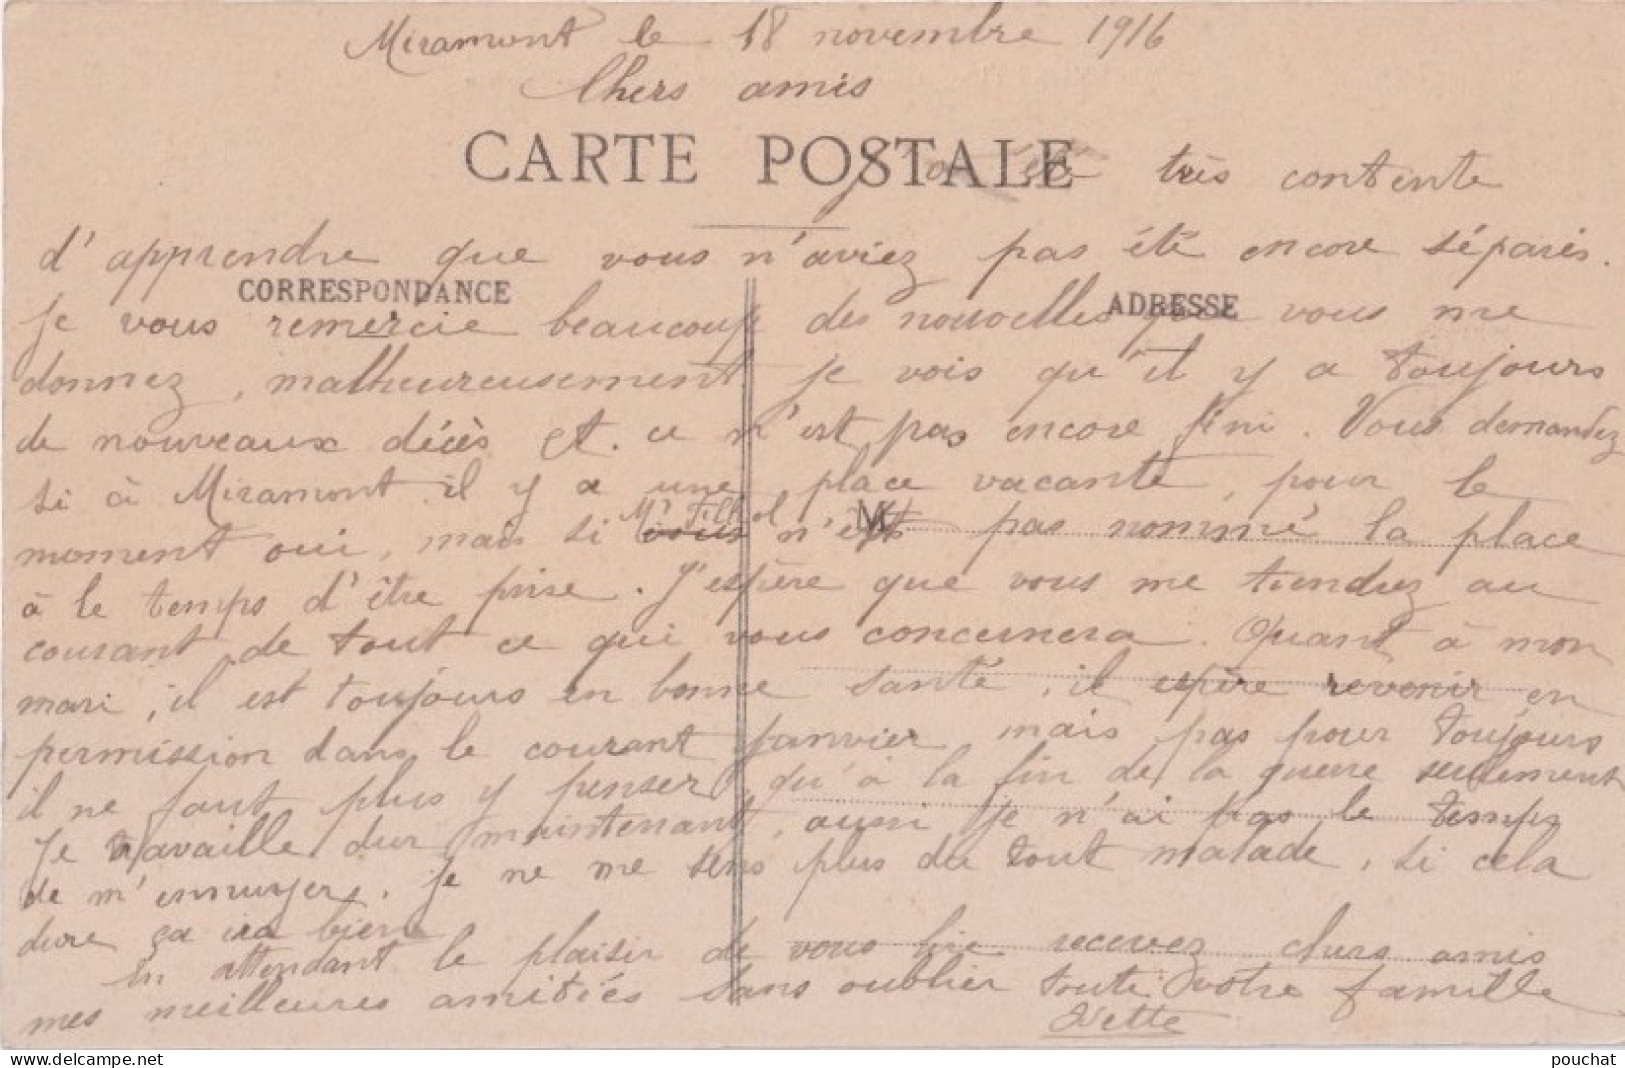 Miramont le 18 novembre 1916
Chers amis
CARTE POSTALE
J'ai été très contente
d'apprendre que vous n'aviez pas été encore séparés.
CORRESPONDANCE
ADRESSE
Je vous remercie beaucoup des nouvelles que vous me
donnez, malheureusement je vois qu'il y a toujours
de nouveaux décès et ce n'est pas encore fini. Vous demandez
si à Miramont il y a une place vacante, pour le
moment oui, mais si Mr n'est pas nommé la place
à le temps d'être prise. J'espère que vous me tiendrez au
courant de tout ce qui vous concernera. Quant à mon
mari, il est toujours en bonne santé, il espère revenir en
permission dans le courant janvier mais pas pour toujours
il ne faut plus y penser, qu'à la fin de la guerre seulement
Je travaille dur maintenant, aussi je n'ai pas le temps
de m'ennuyer, je ne me sens plus du tout malade, si cela
dure ça ira bien
En attendant le plaisir de vous lire recevez chers amis
mes meilleures amitiés sans oublier toute votre famille
Yvette
pouchat